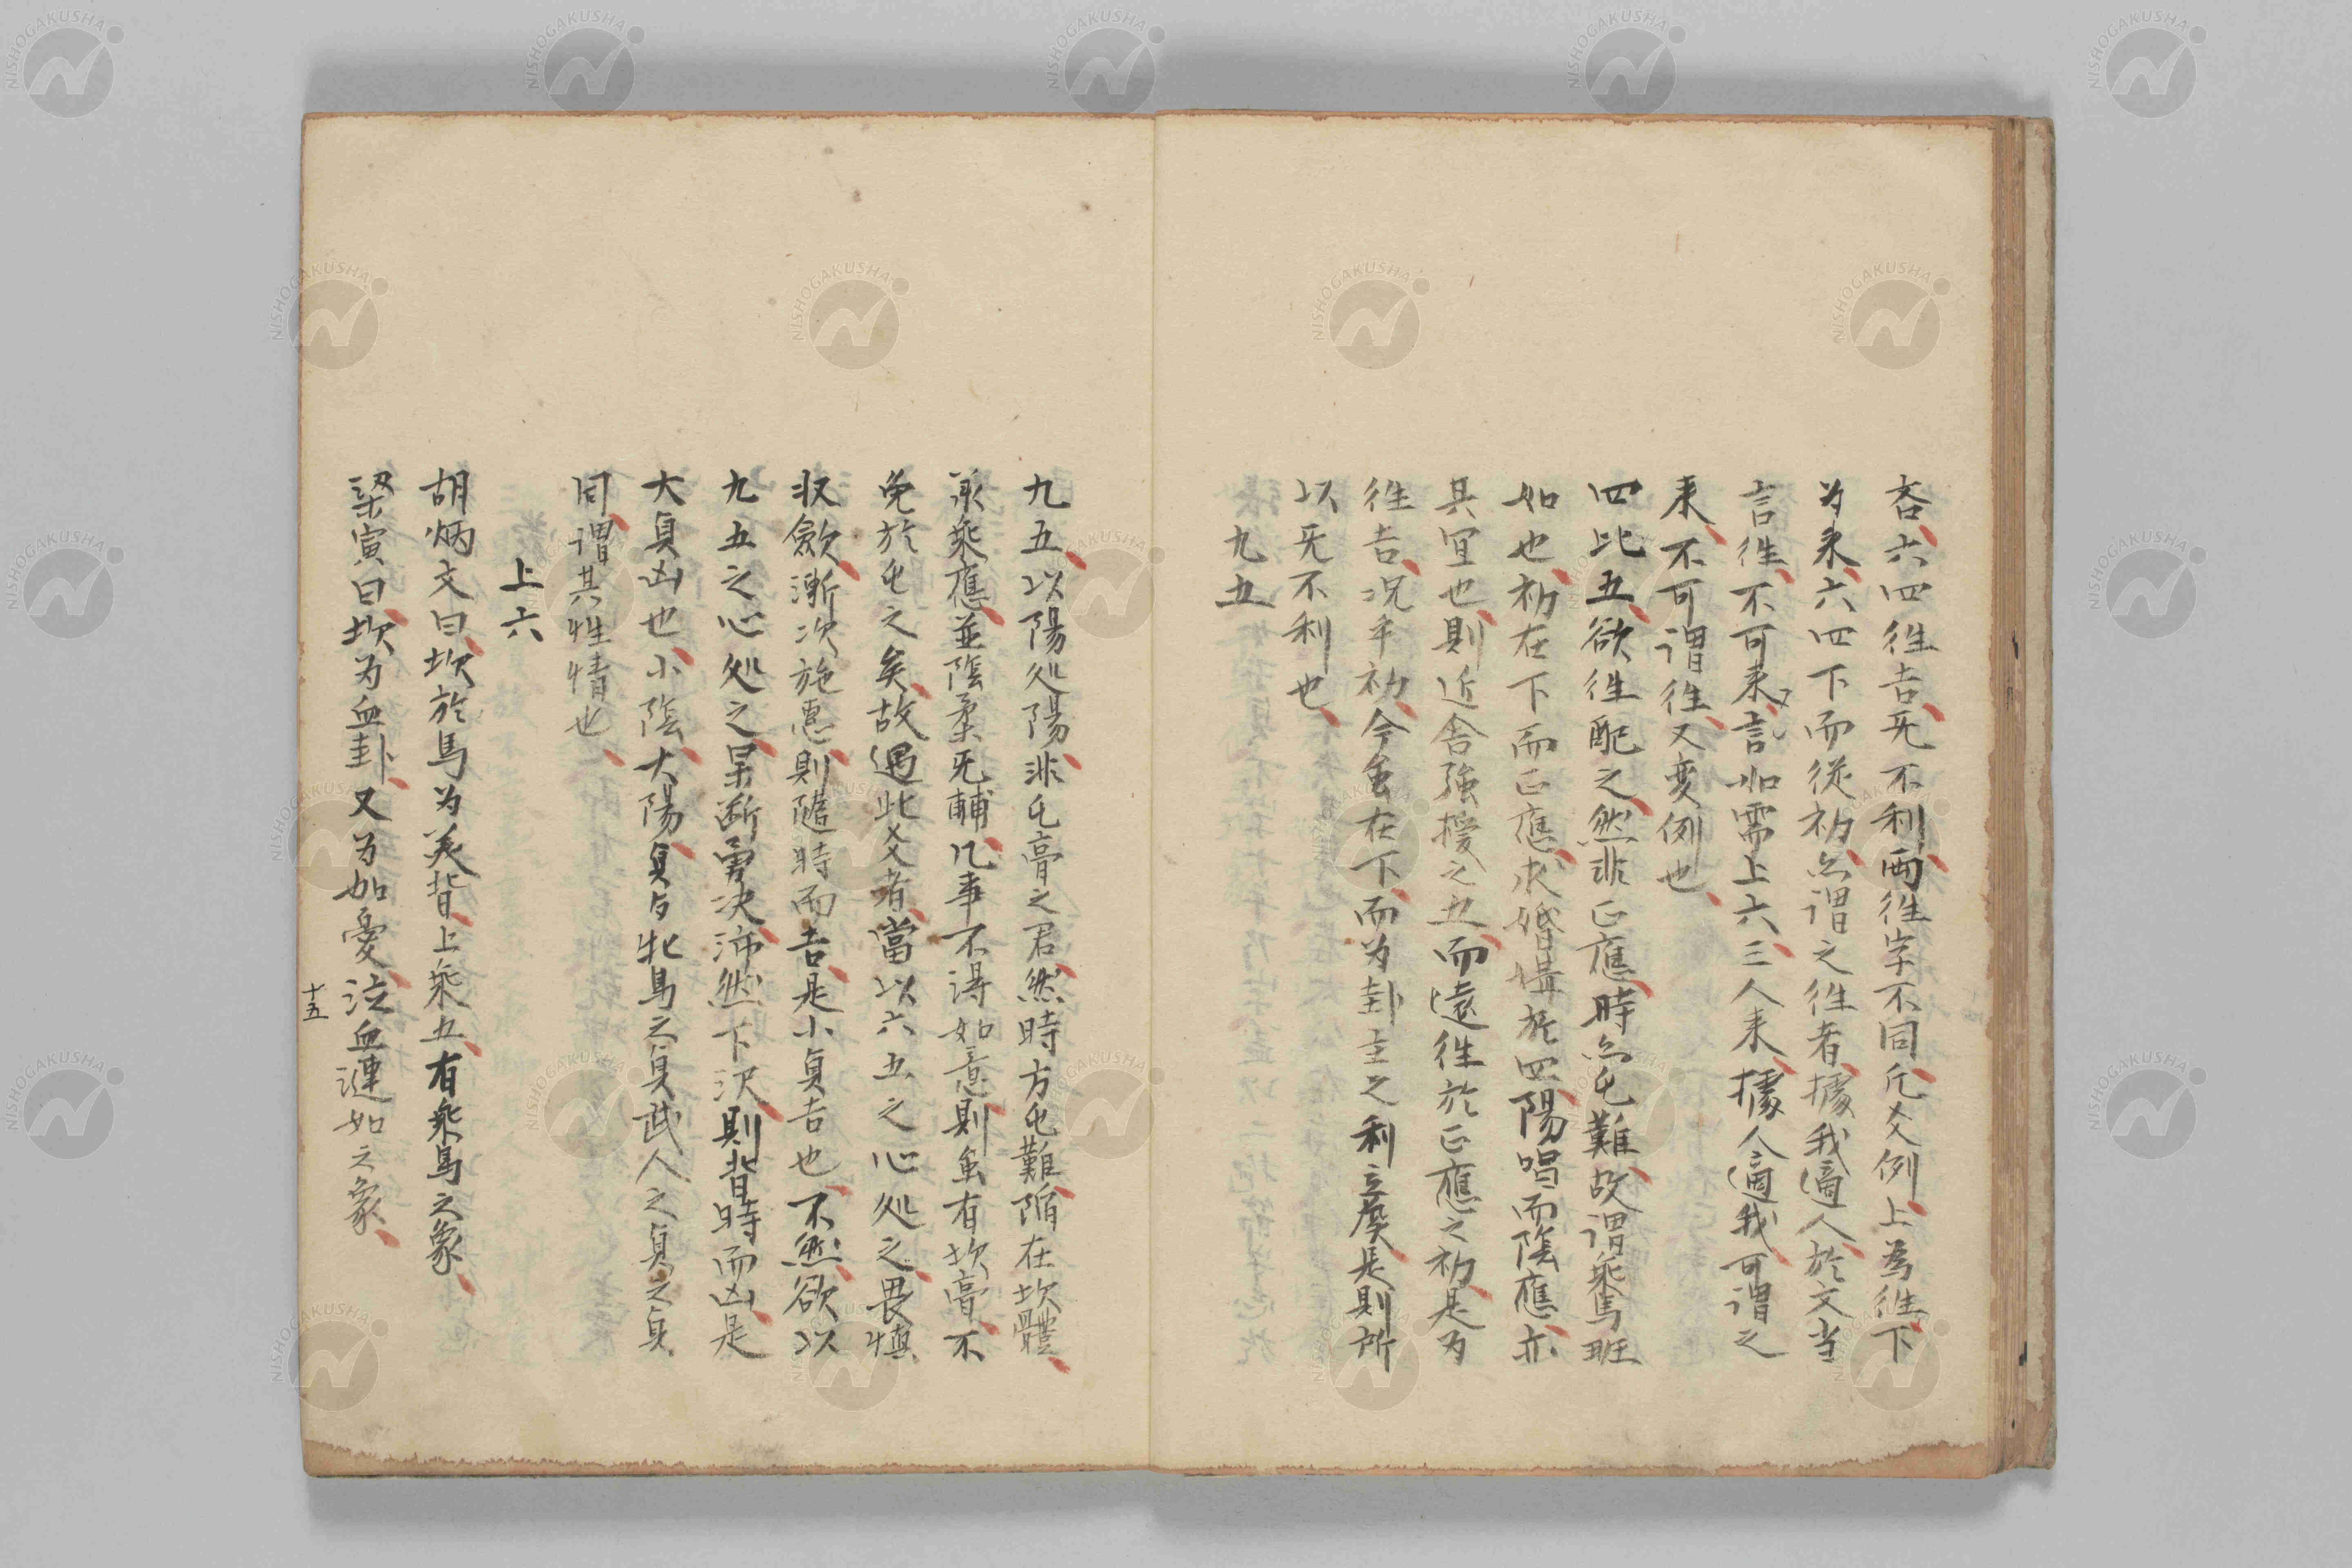 吝、六四徃吉旡不利、両徃字不同、凡爻例、上為徃、下
为来、六四下而従初、亦謂之徃者、據我適人、於文当
言徃、不可来言、如需上六、三人来、據人適我、可謂之
来、不可謂徃、又変例也、
四比五、欲徃配之、然非正應、時亦屯難、故謂乗馬班
如也、初在下而正應、求婚媾於四、陽唱而陰應、亦
其宜也、則近舎強援之五、而遠徃於正應之初、是为
徃吉、况乎初、今虽在下、而为卦主之利立矦、是則所
以旡不利也、
九五
九五、以陽処陽、非屯膏之君、然時方屯難、陥在坎體、
承乗應、並陰柔旡輔、凡事不得如意、則虽有坎膏、不
免於屯之矣、故遇此爻者、當以六五之心処之、畏慎
収斂、漸次施恵、則隨時而吉、是小貞吉也、不然、欲以
九五之心処之、果断勇决、沛然下沢、則背時而凶、是
大貞凶也、小陰、大陽、貞与牝馬之貞武人之貞之貞
同、謂其性情也、
上六
胡炳文曰、坎於馬为美背、上乗五、有乗馬之象、
梁寅曰、坎为血卦、又为加憂、泣血漣如之象、
十五
NISHOGAKUSHA